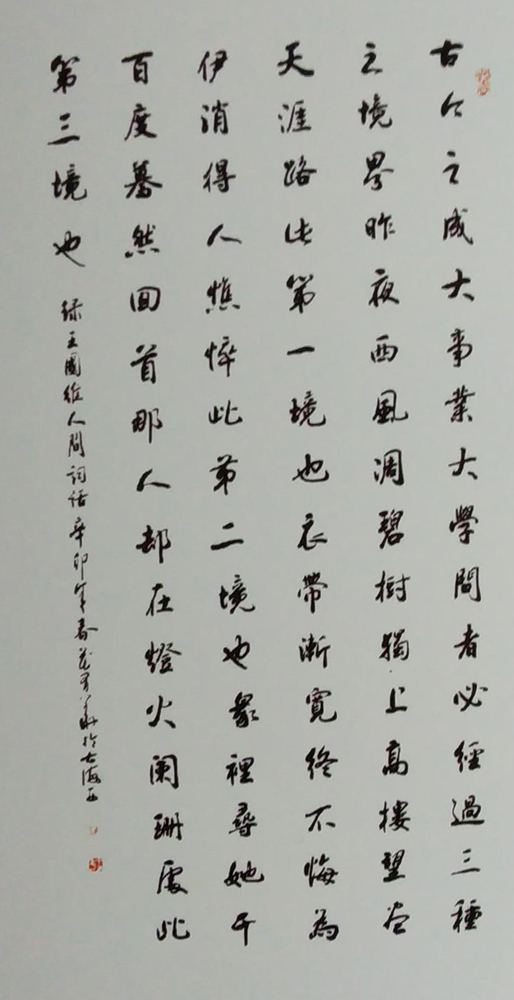 古今之成大事業大學問者必經過三種
之境界昨夜西風凋碧樹獨上高樓望盡
天涯路此第一境也衣帶漸寬終不悔為
伊消得人憔悴此第二境也衆裡尋她千
百度驀然回首那人却在燈火闌珊處此
第三境也
録王國維人間詞話辛卯年春